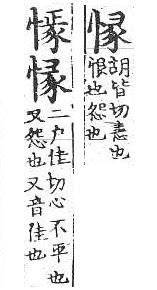 㥟
胡皆切恚也
恨也怨也
㥟
二户佳切心不平也
又怨也又音佳也